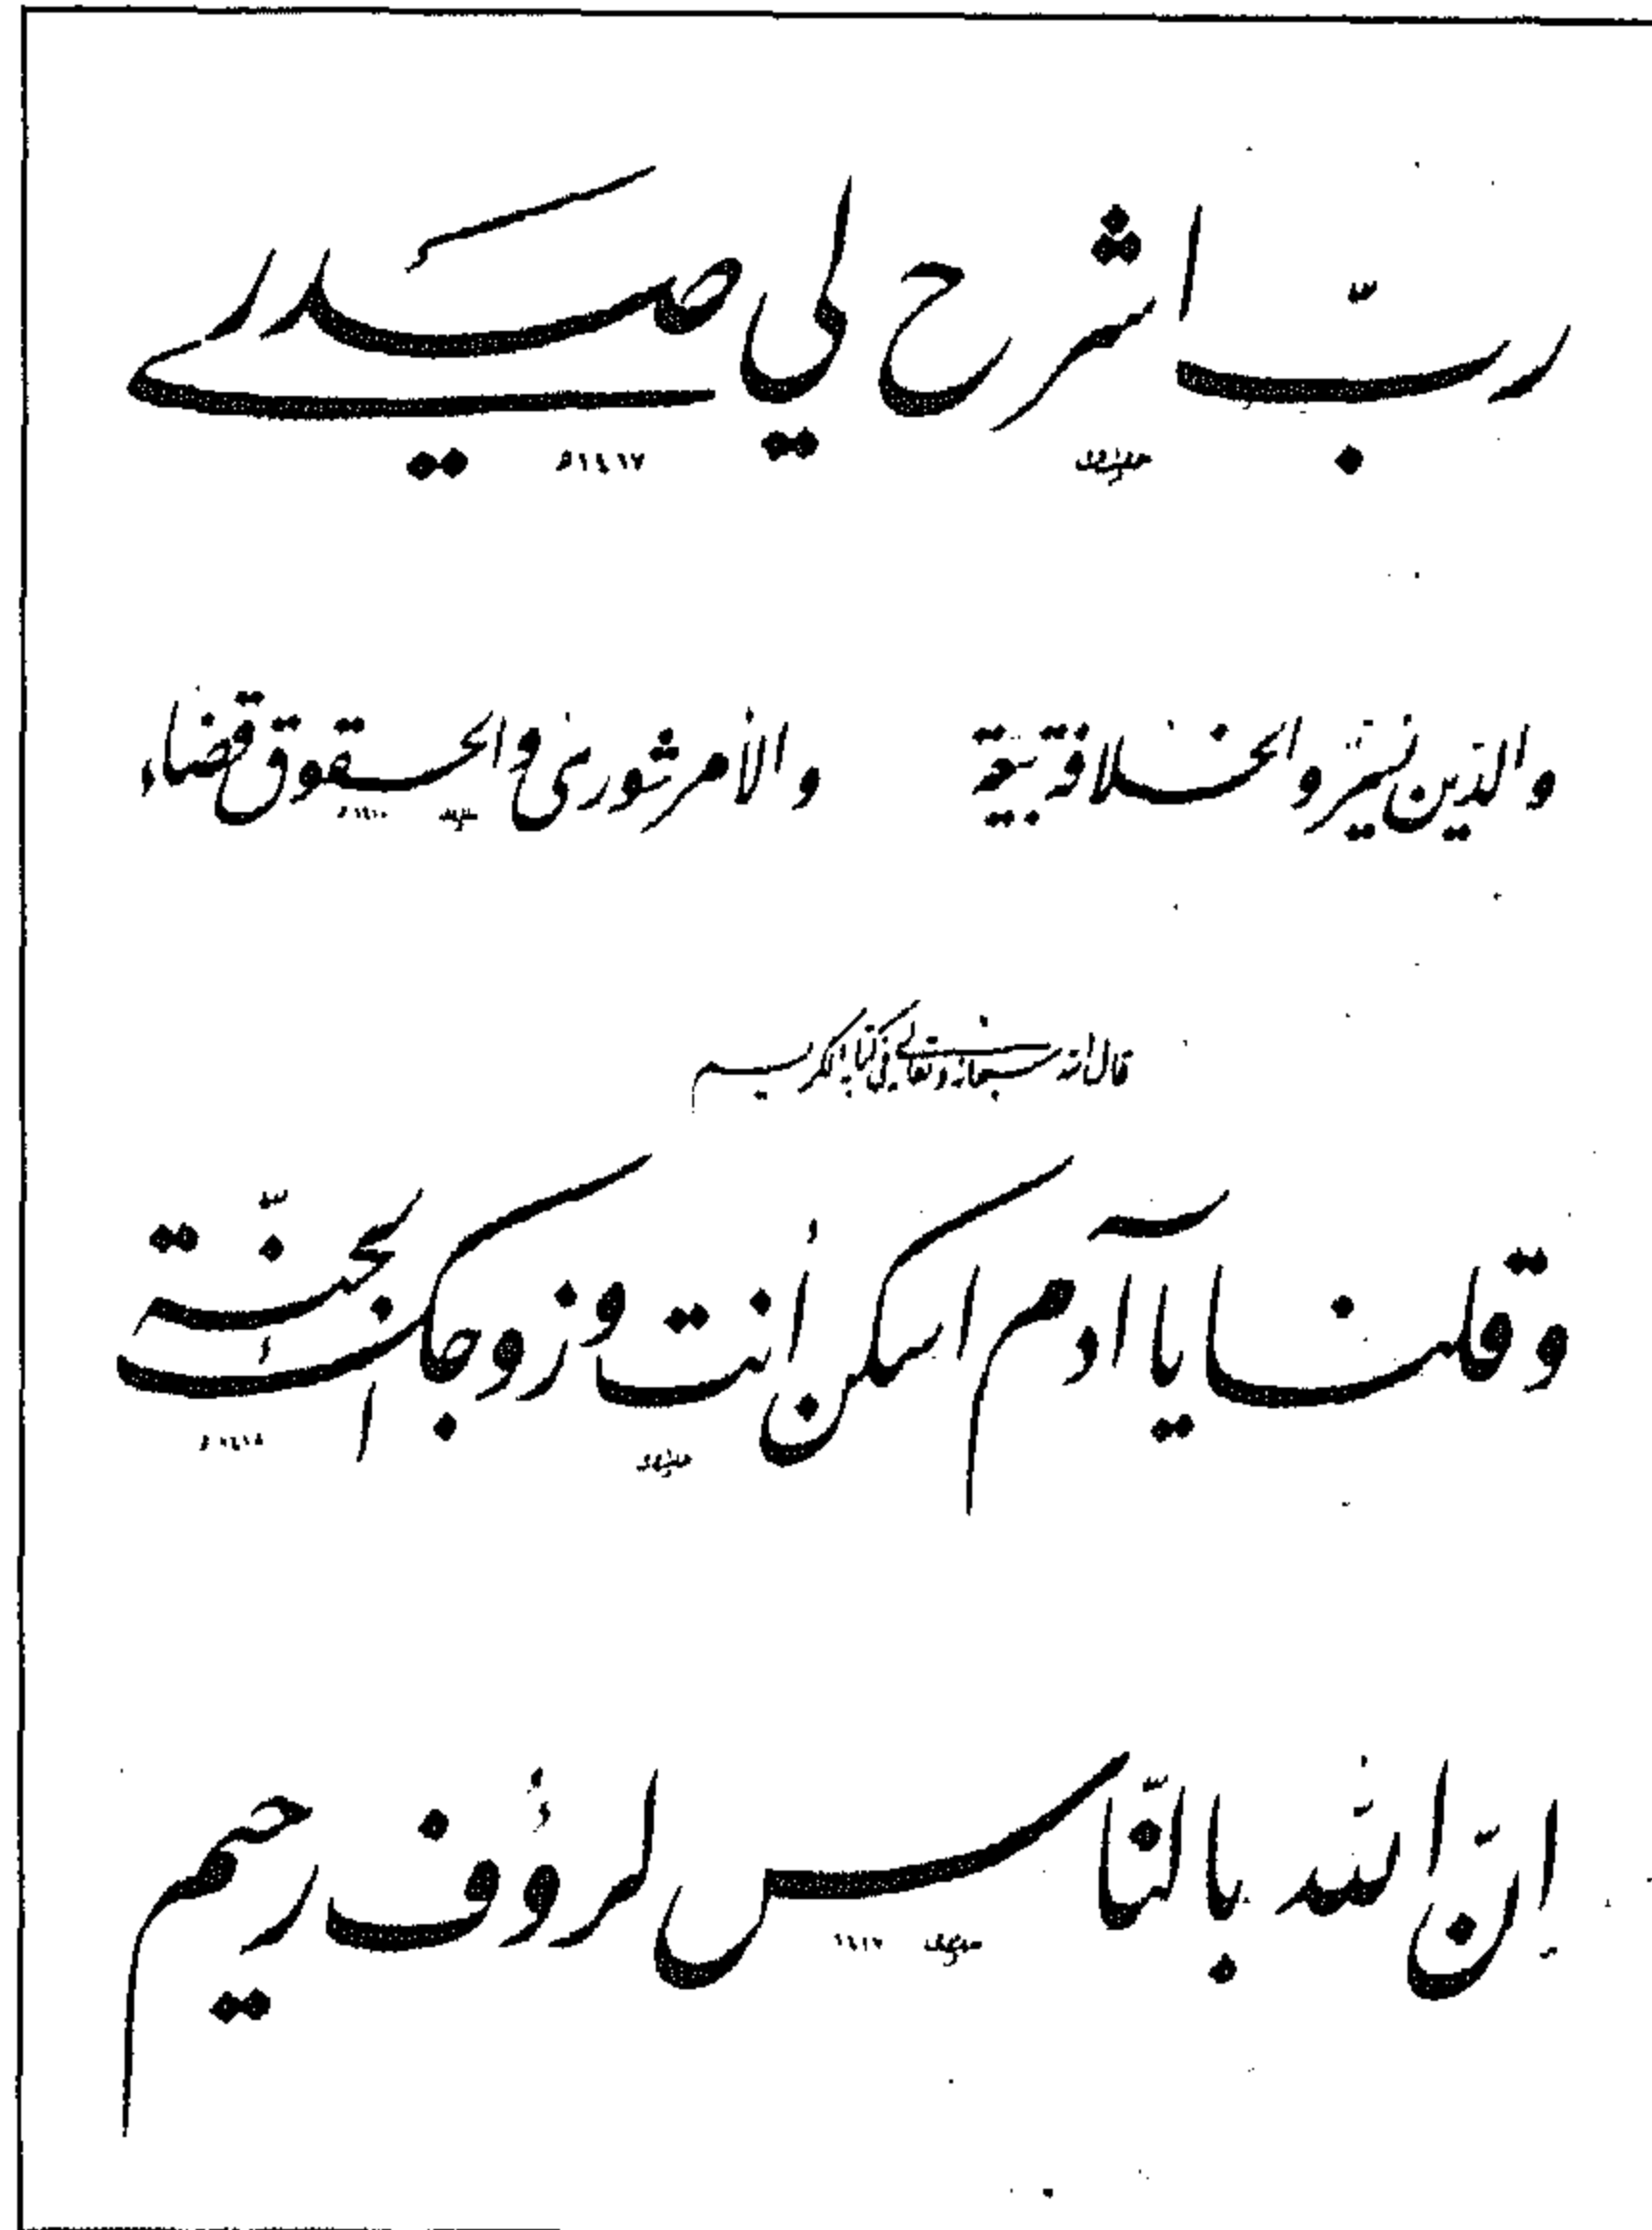 ربّ اشرح لي صدري
١٤١٧
والدّين يُسْرٌ والخلافةُ بيعةٌ والأمر شورى والحقوق قضاء
قال الله سبحانه وتعالى في كتابه الكريم
وقلنا يا آدم اسكن أنت وزوجك الجنّة
١٤١٨
إنّ الله بالنّاس لرؤف رحيم
١٤١٧